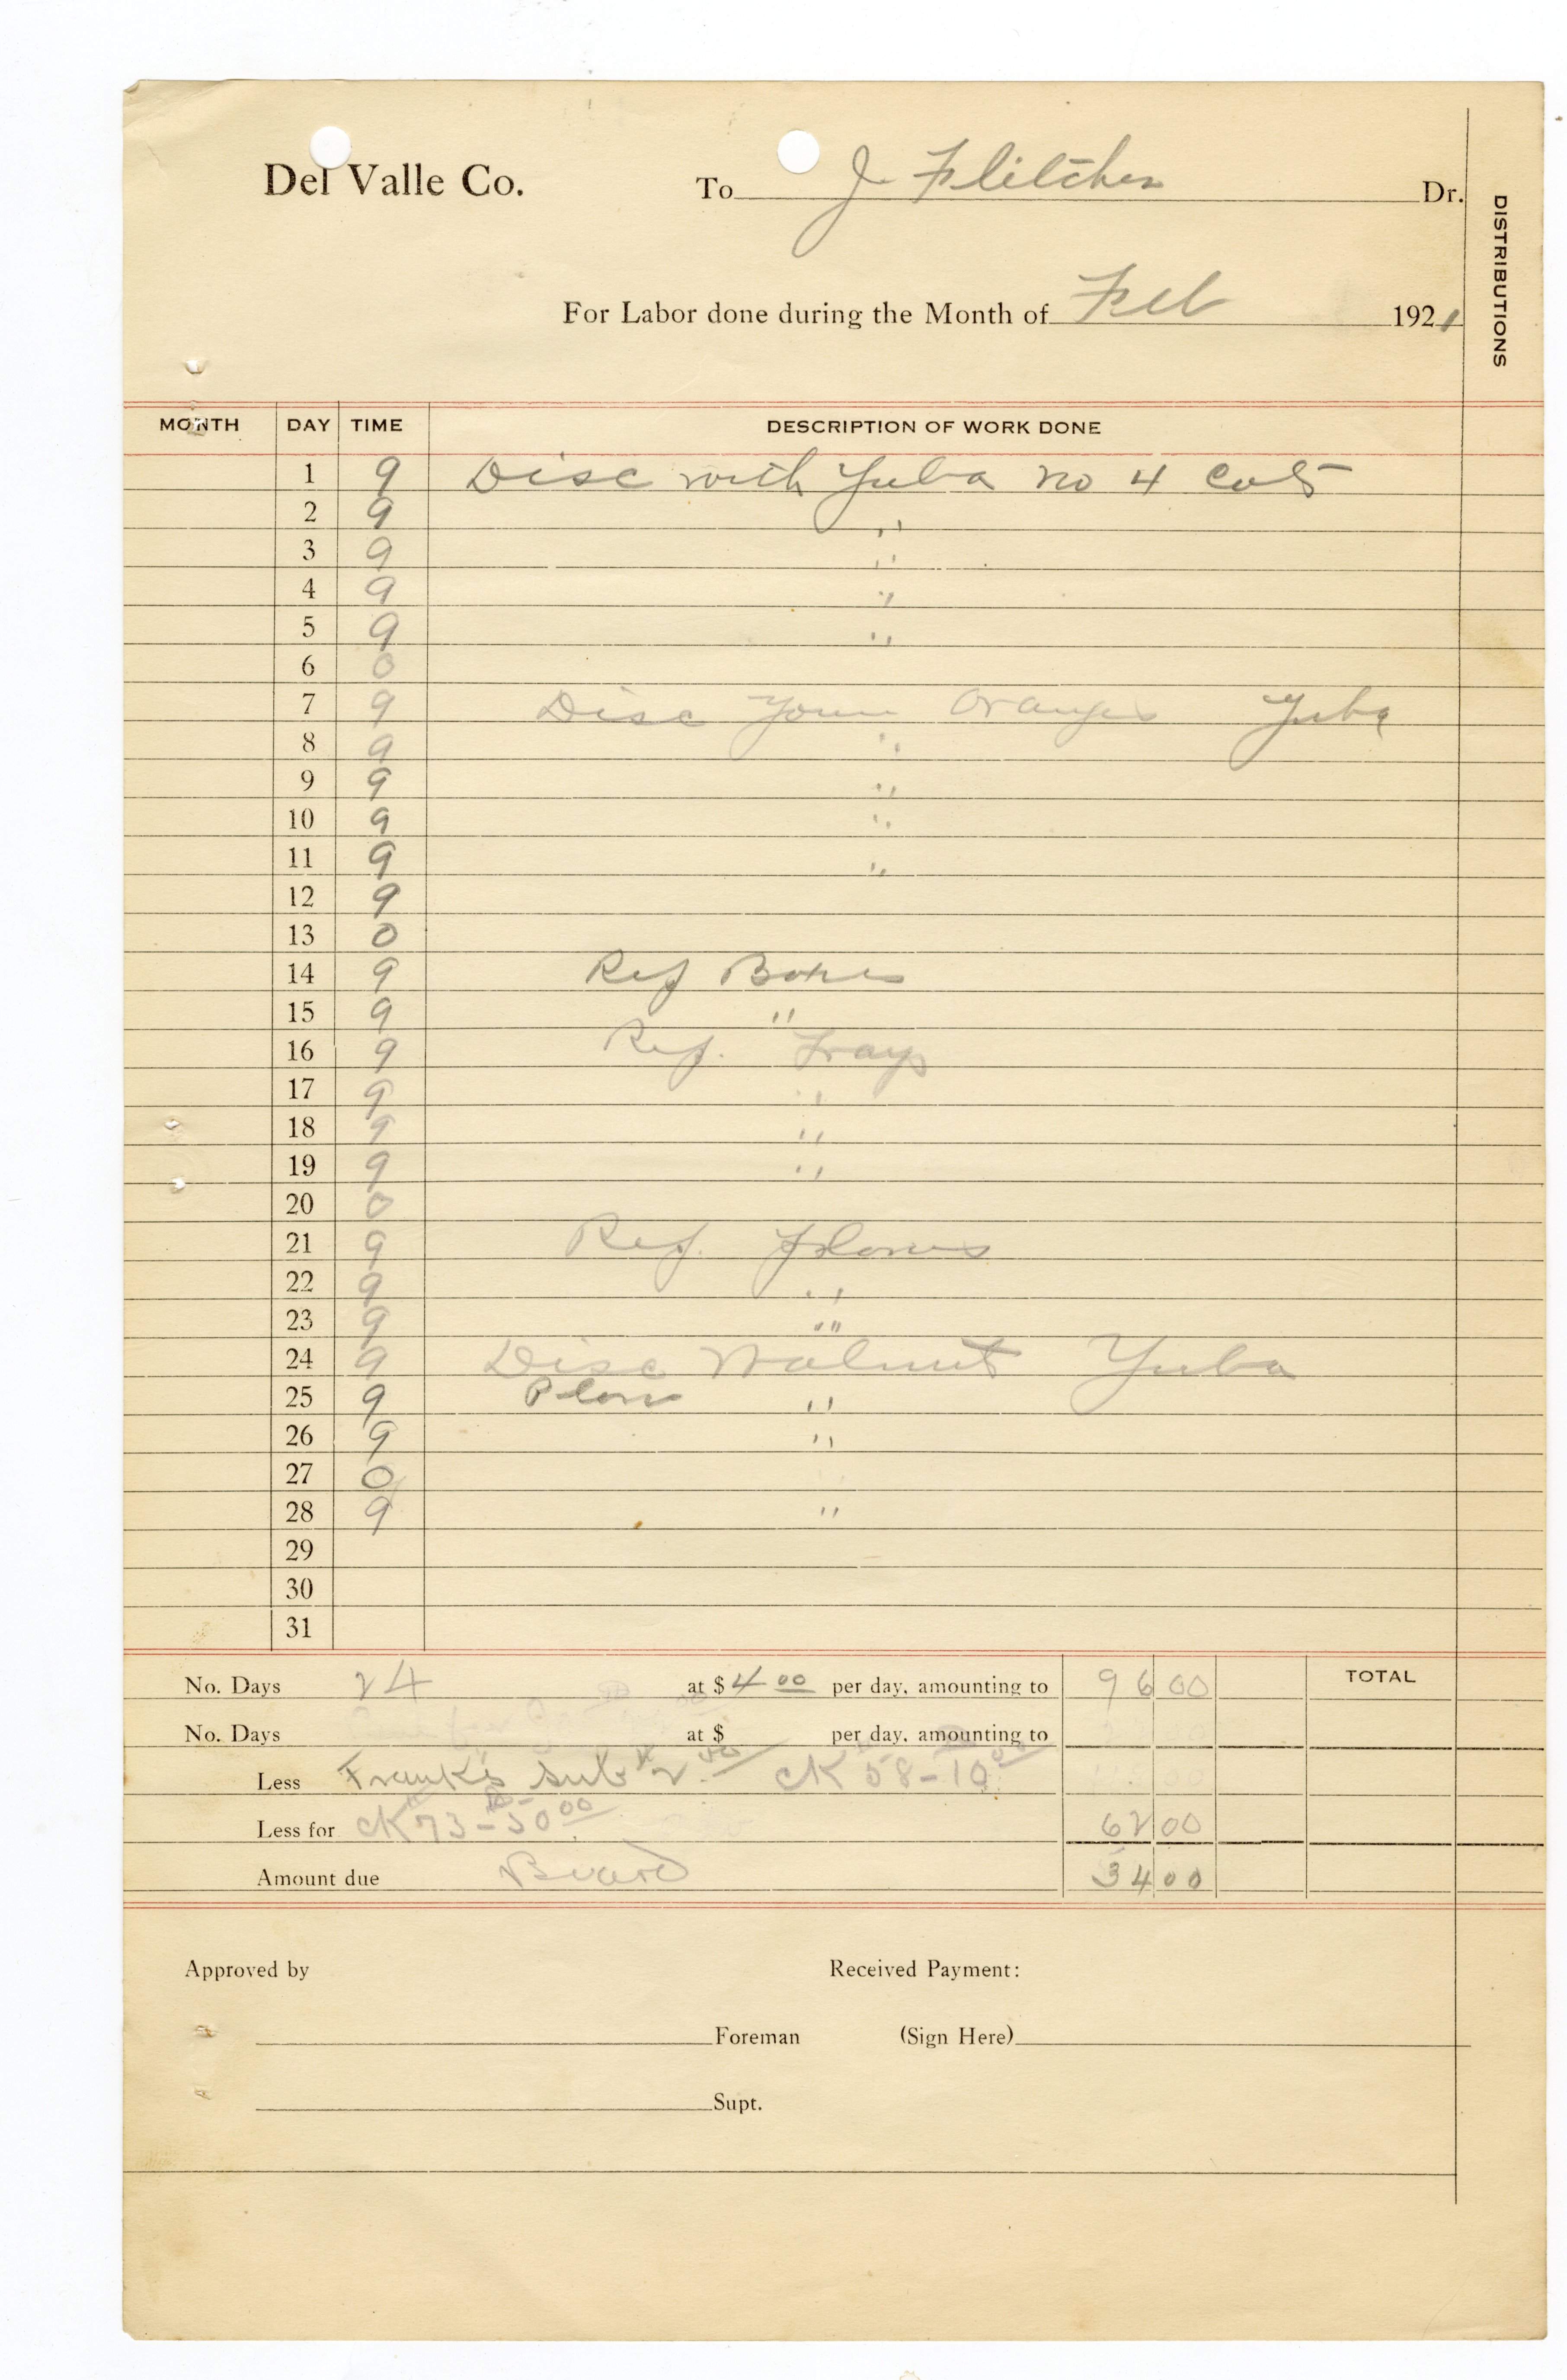 Del Valle Co. To J. Flitcher Dr.
DISTRIBUTIONS
For Labor done during the Month of Feb 1921
MONTH DAY TIME DESCRIPTION OF WORK DONE
1 9 Disc with Yuba no 4 Colt
2 9 "
3 9 "
4 9 "
5 9 "
6 0
7 9 Disc Youn Oranges Yuba
8 9 "
9 9 "
10 9 "
11 9 "
12 9
13 0
14 9 Rep Boxes
15 9 "
16 9 Rep. Trays
17 9 "
18 9 "
19 9 "
20 0
21 9 Rep. Plows
22 9 "
23 9 "
24 9 Disc Walnut Yuba
25 9 Plow "
26 9 "
27 0
28 9 "
29
30
31
No. Days 24 at $ 4 00 per day, amounting to 96 00 TOTAL
No. Days at $ per day, amounting to
Less Frank's sub 2 00 CK 58-10 00
Less for CK 73-50 00 62 00
Amount due Board 34 00
Approved by Received Payment:
Foreman (Sign Here)
Supt.